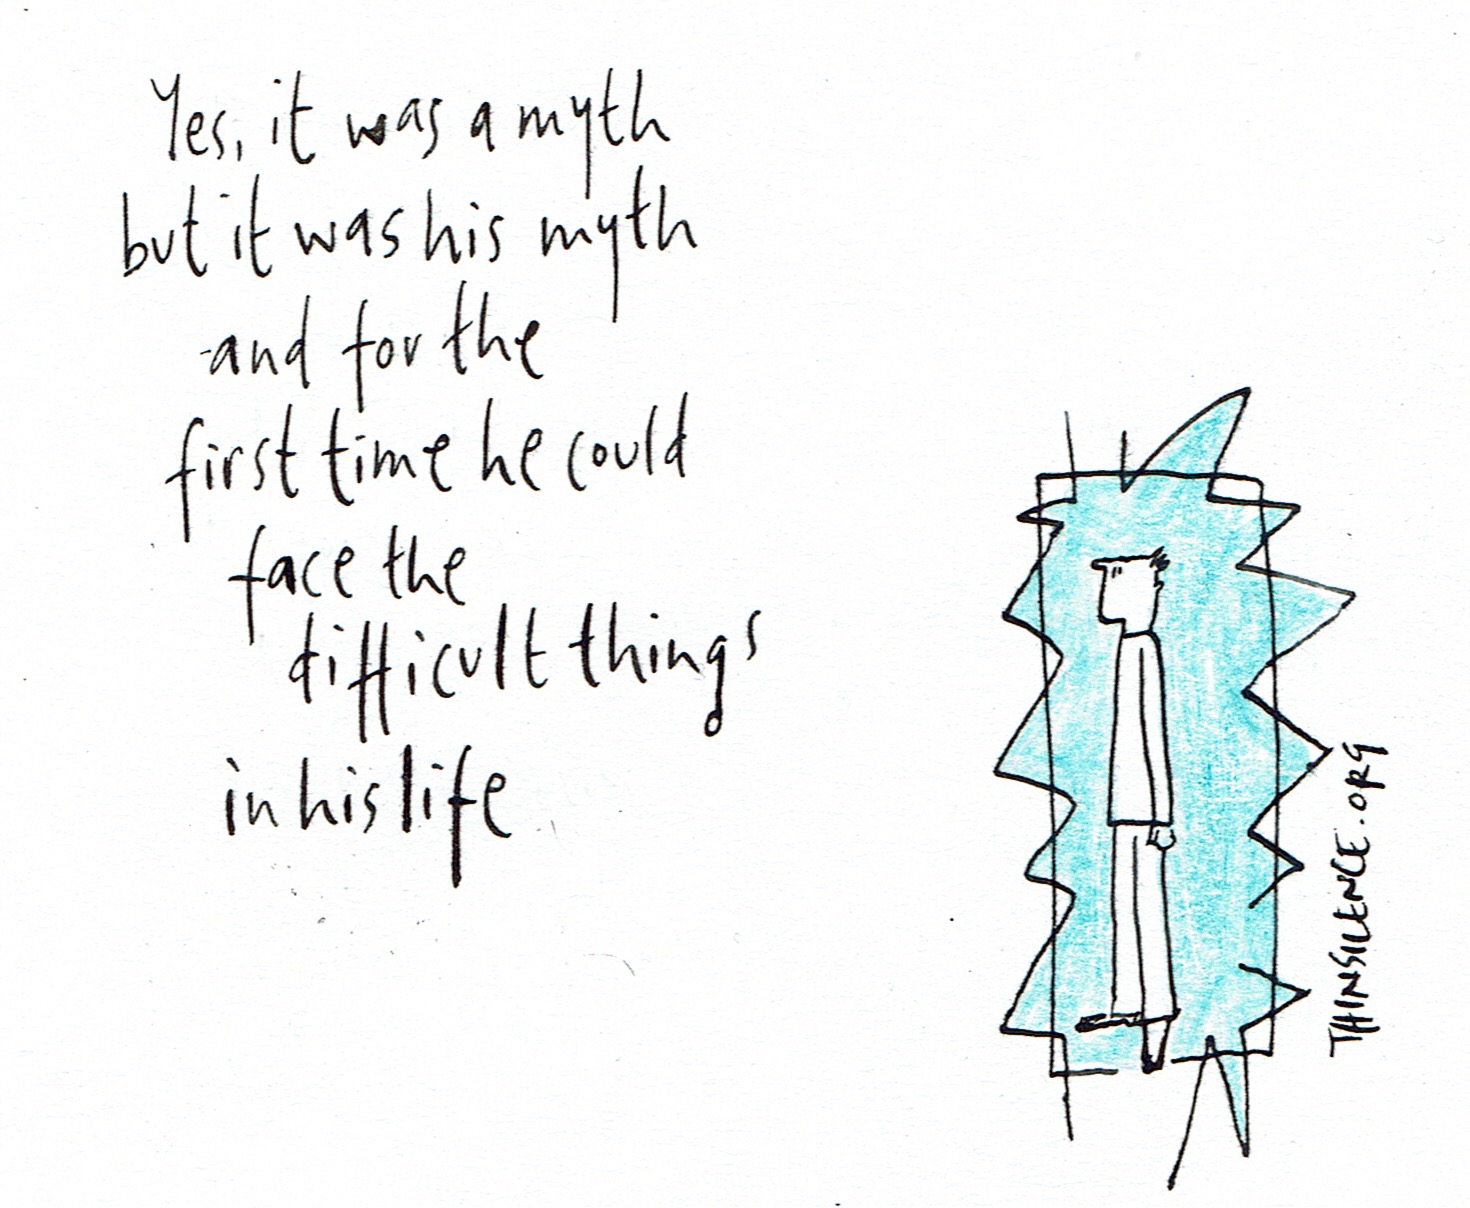 Yes, it was a myth
but it was his myth
and for the
first time he could
face the
difficult things
in his life
THINSILENCE.ORG